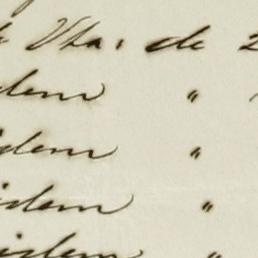 Vta. de 2
idem "
idem "
idem "
idem "